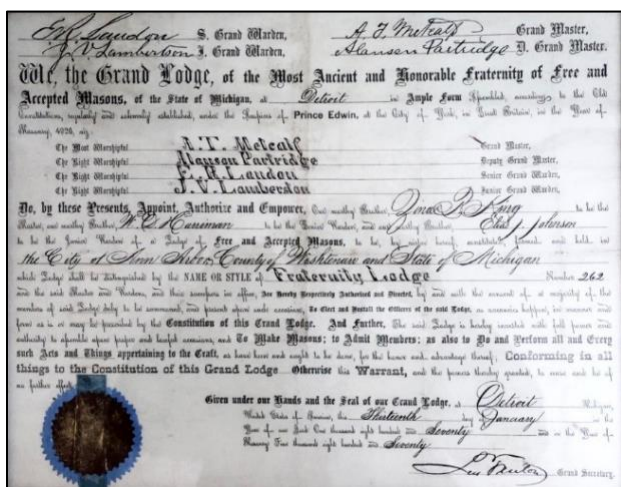 F.R. Landon S. Grand Warden, A. T. Metcalf Grand Master,
J. V. Lamberton J. Grand Warden, Alanson Partridge D. Grand Master.
We, the Grand Lodge, of the Most Ancient and Honorable Fraternity of Free and
Accepted Masons, of the State of Michigan, at Detroit in Ample Form Assembled, according to the Old
Constitutions, regularly and solemnly established, under the Auspices of Prince Edwin, at the City of York, in Great Britain, in the Year of
Masonry, 4926, viz:
The Most Worshipful A. T. Metcalf Grand Master,
The Right Worshipful Alanson Partridge Deputy Grand Master,
The Right Worshipful F. R. Landon Senior Grand Warden,
The Right Worshipful J. V. Lamberton Junior Grand Warden,
Do, by these Presents, Appoint, Authorize and Empower, Our worthy Brother, Zina P. King to be the
Master, our worthy Brother, W. C. Hariman to be the Senior Warden, and our worthy Brother, Elias J. Johnson
to be the Junior Warden of a Lodge of Free and Accepted Masons, to be, by virtue hereof, constituted, formed and held in
the City of Ann Arbor County of Washtenaw and State of Michigan
which Lodge shall be distinguished by the NAME OR STYLE of Fraternity Lodge Number 262
and the said Master and Wardens, and their successors in office, Are Hereby Respectively Authorized and Directed, by and with the consent of a majority of the
members of said Lodge duly to be summoned, and present upon such occasions, To Elect and Install the Officers of the said Lodge, as vacancies happen, in manner and
form as is or may be prescribed by the Constitution of this Grand Lodge. And Further, The said Lodge is hereby invested with full power and
authority to assemble upon proper and lawful occasions, and To Make Masons; to Admit Members; as also to Do and Perform all and Every
such Acts and Things appertaining to the Craft, as have been and ought to be done, for the honor and advantage thereof; Conforming in all
things to the Constitution of this Grand Lodge Otherwise this Warrant, and the powers thereby granted, to cease and be of
no further effect.
Given under our Hands and the Seal of our Grand Lodge, at Detroit Michigan,
United States of America, this Thirteenth day January in the
Year of our Lord One thousand eight hundred and Seventy and in the Year of
Masonry Five thousand eight hundred and Seventy
Jas Fenton Grand Secretary.